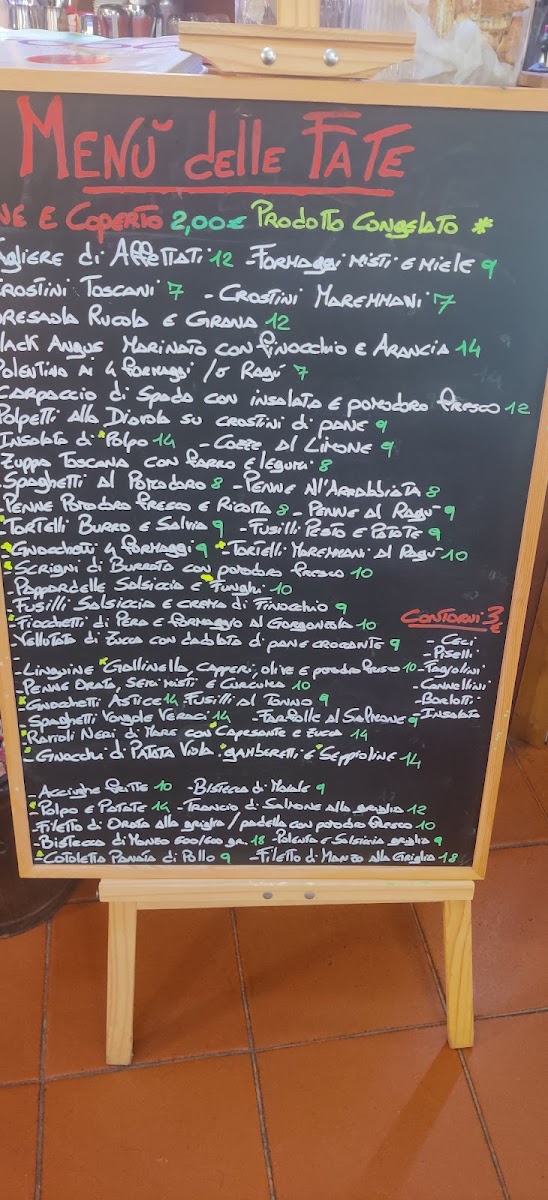 Menù delle Fate
NE E Coperto 2,00€ Prodotto Congelato *
agliere di Affettati 12 -Formaggi misti e miele 9
Crostini Toscani 7 - Crostini Maremmani 7
Bresaola Rucola e Grana 12
lack Angus Marinato con finocchio e Arancia 14
Polentina ai 4 formaggi /o Ragù 7
Carpaccio di Spada con insalata e pomodoro fresco 12
Polpetti alla Diavola su crostini di pane 9
Insalata di *Polpo 14 - Cozze al Limone 9
Zuppa Toscana con farro e legumi 8
-Spaghetti al Pomodoro 8 -Penne all'Arrabbiata 8
-Penne Pomodoro fresco e Ricotta 8 -Penne al Ragù 9
*Tortelli Burro e Salvia 9 -Fusilli Pesto e Patate 9
*Gnocchetti 4 formaggi 9 *-Tortelli Maremmani al Ragù 10
*Scrigni di Burrata con pomodoro fresco 10
-Pappardelle Salsiccia e *Funghi 10
-Fusilli Salsiccia e crema di Finocchio 9
Contorni 3€
*Fiocchetti di Pera e formaggio al Gorgonzola 10
- Ceci
-Vellutata di Zucca con dadolata di pane croccante 9
- Piselli
-Linguine *Gallinella, Capperi, olive e pomodoro fresco 10
- Fagiolini
-Penne Orata, Semi misti e Curcuma 10
- Cannellini
*Gnocchetti Astice 14 -Fusilli al Tonno 9
- Borlotti
-Spaghetti Vongole Veraci 14 -Farfalle al Salmone 9
-Insalata
*-Ravioli Neri di Mare con *Capesante e zucca 14
*-Gnocchi di Patata Viola *gamberetti e *Seppioline 14
-Acciughe fritte 10 -Bistecca di Maiale 9
-*Polpo e Patate 14 -Trancio di Salmone alla griglia 12
-Filetto di Orata alla griglia / padella con pomodoro fresco 10
-Bistecca di Manzo 500/600 gr. 18 -Polenta e Salsiccia griglia 9
*Cotoletta Panata di Pollo 9 -Filetto di Manzo alla Griglia 18